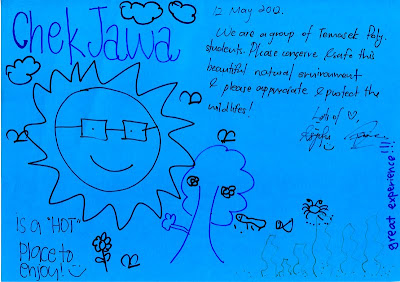 Chek Jawa
12 May 2012.
We are a group of Temasek Poly.
students. Please conserve & safe this
beautiful natural environment
& please appreciate & protect the
wildlifes!
Lots of ♡,
is a "HOT"
Place to
enjoy!
great experience!!!